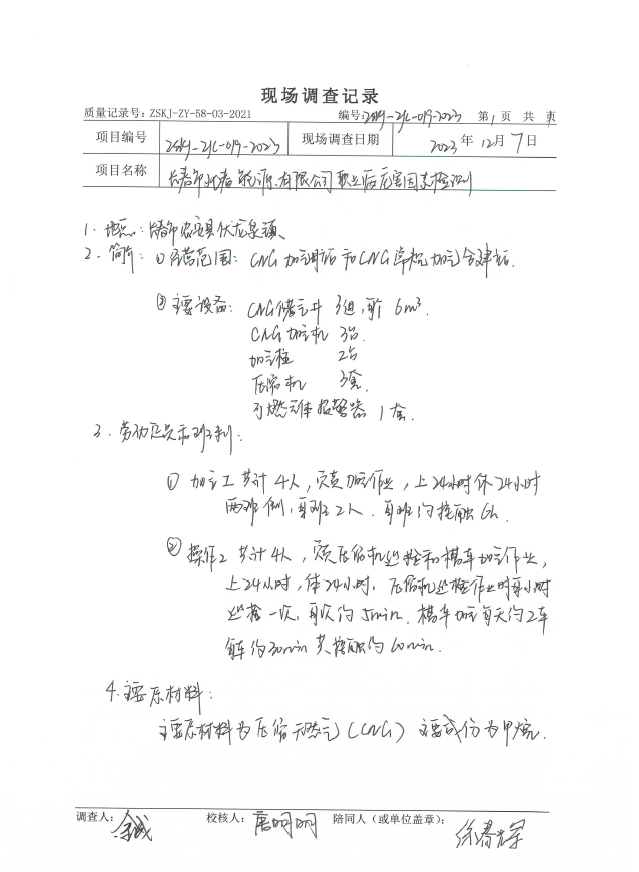 现场调查记录
质量记录号: ZSKJ-ZY-58-03-2021 编号: ZSKJ-ZJC-019-2023 第1页 共 页
项目编号 ZSKJ-ZJC-019-2023 现场调查日期 2023年12月7日
项目名称 长春市 能源有限公司职业病危害因素检测
1. 地点: 长春市农安县伏龙泉镇
2. 简介: ① 经营范围: CNG加气母站和CNG常规加气合建站.
② 主要设备: CNG储气井 3组, 6m³.
CNG加气机 3台.
加气柱 2台
压缩机 3套.
可燃气体报警器 1套.
3. 劳动定员和班制:
① 加气工共计4人, 负责加气作业, 上24小时休24小时
两班倒, 每班2人. 每班约接触6h.
② 操作工共计4人, 负责压缩机巡检和橇车加气作业,
上24小时, 休24小时, 压缩机巡检作业时每小时
巡检一次, 每次约5min. 橇车加气每天约2车
每车约30min 共接触约60min.
4. 主要原材料:
主要原材料为压缩天然气(CNG) 主要成份为甲烷.
调查人: 校核人: 唐明明 陪同人(或单位盖章): 徐春荣